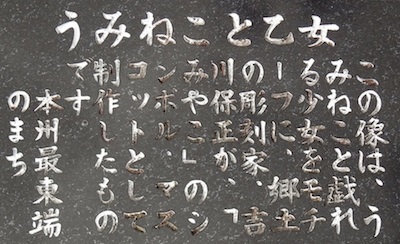 うみねこと乙女
この像は、う
みねこと戯れ
る少女をモチ
ーフに、郷土
の彫刻家、吉
川保正が、「
みやこ」のシ
ンボル、マス
コットとして
制作したもの
です。
本州最東端
のまち